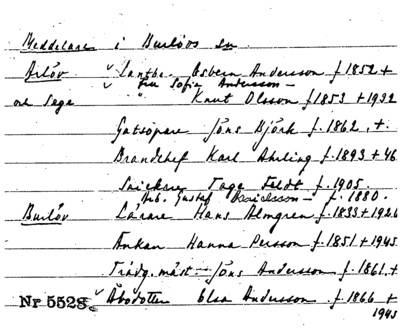 Meddelare i Burlövs sn
Arlöv Lantbr. Esbern Andersson f 1852 +
Fru Sofia Andersson —
och Sege " Knut Olsson f 1853 + 1932
Gatsopare Jöns Björk f. 1862, +.
Brandchef Karl Ahrling f. 1893 + 46
Snickare Tage Feldt f. 1905.
Arb. Gustaf f. 1880.
Burlöv Lärare Hans Almgren f. 1833 + 1926
Änkan Hanna Persson f. 1851 + 1945
Trädg. mäst — Jöns Andersson f. 1861. +
Nr 5528 Åbodotter Elsa Andersson f. 1866 +
1945